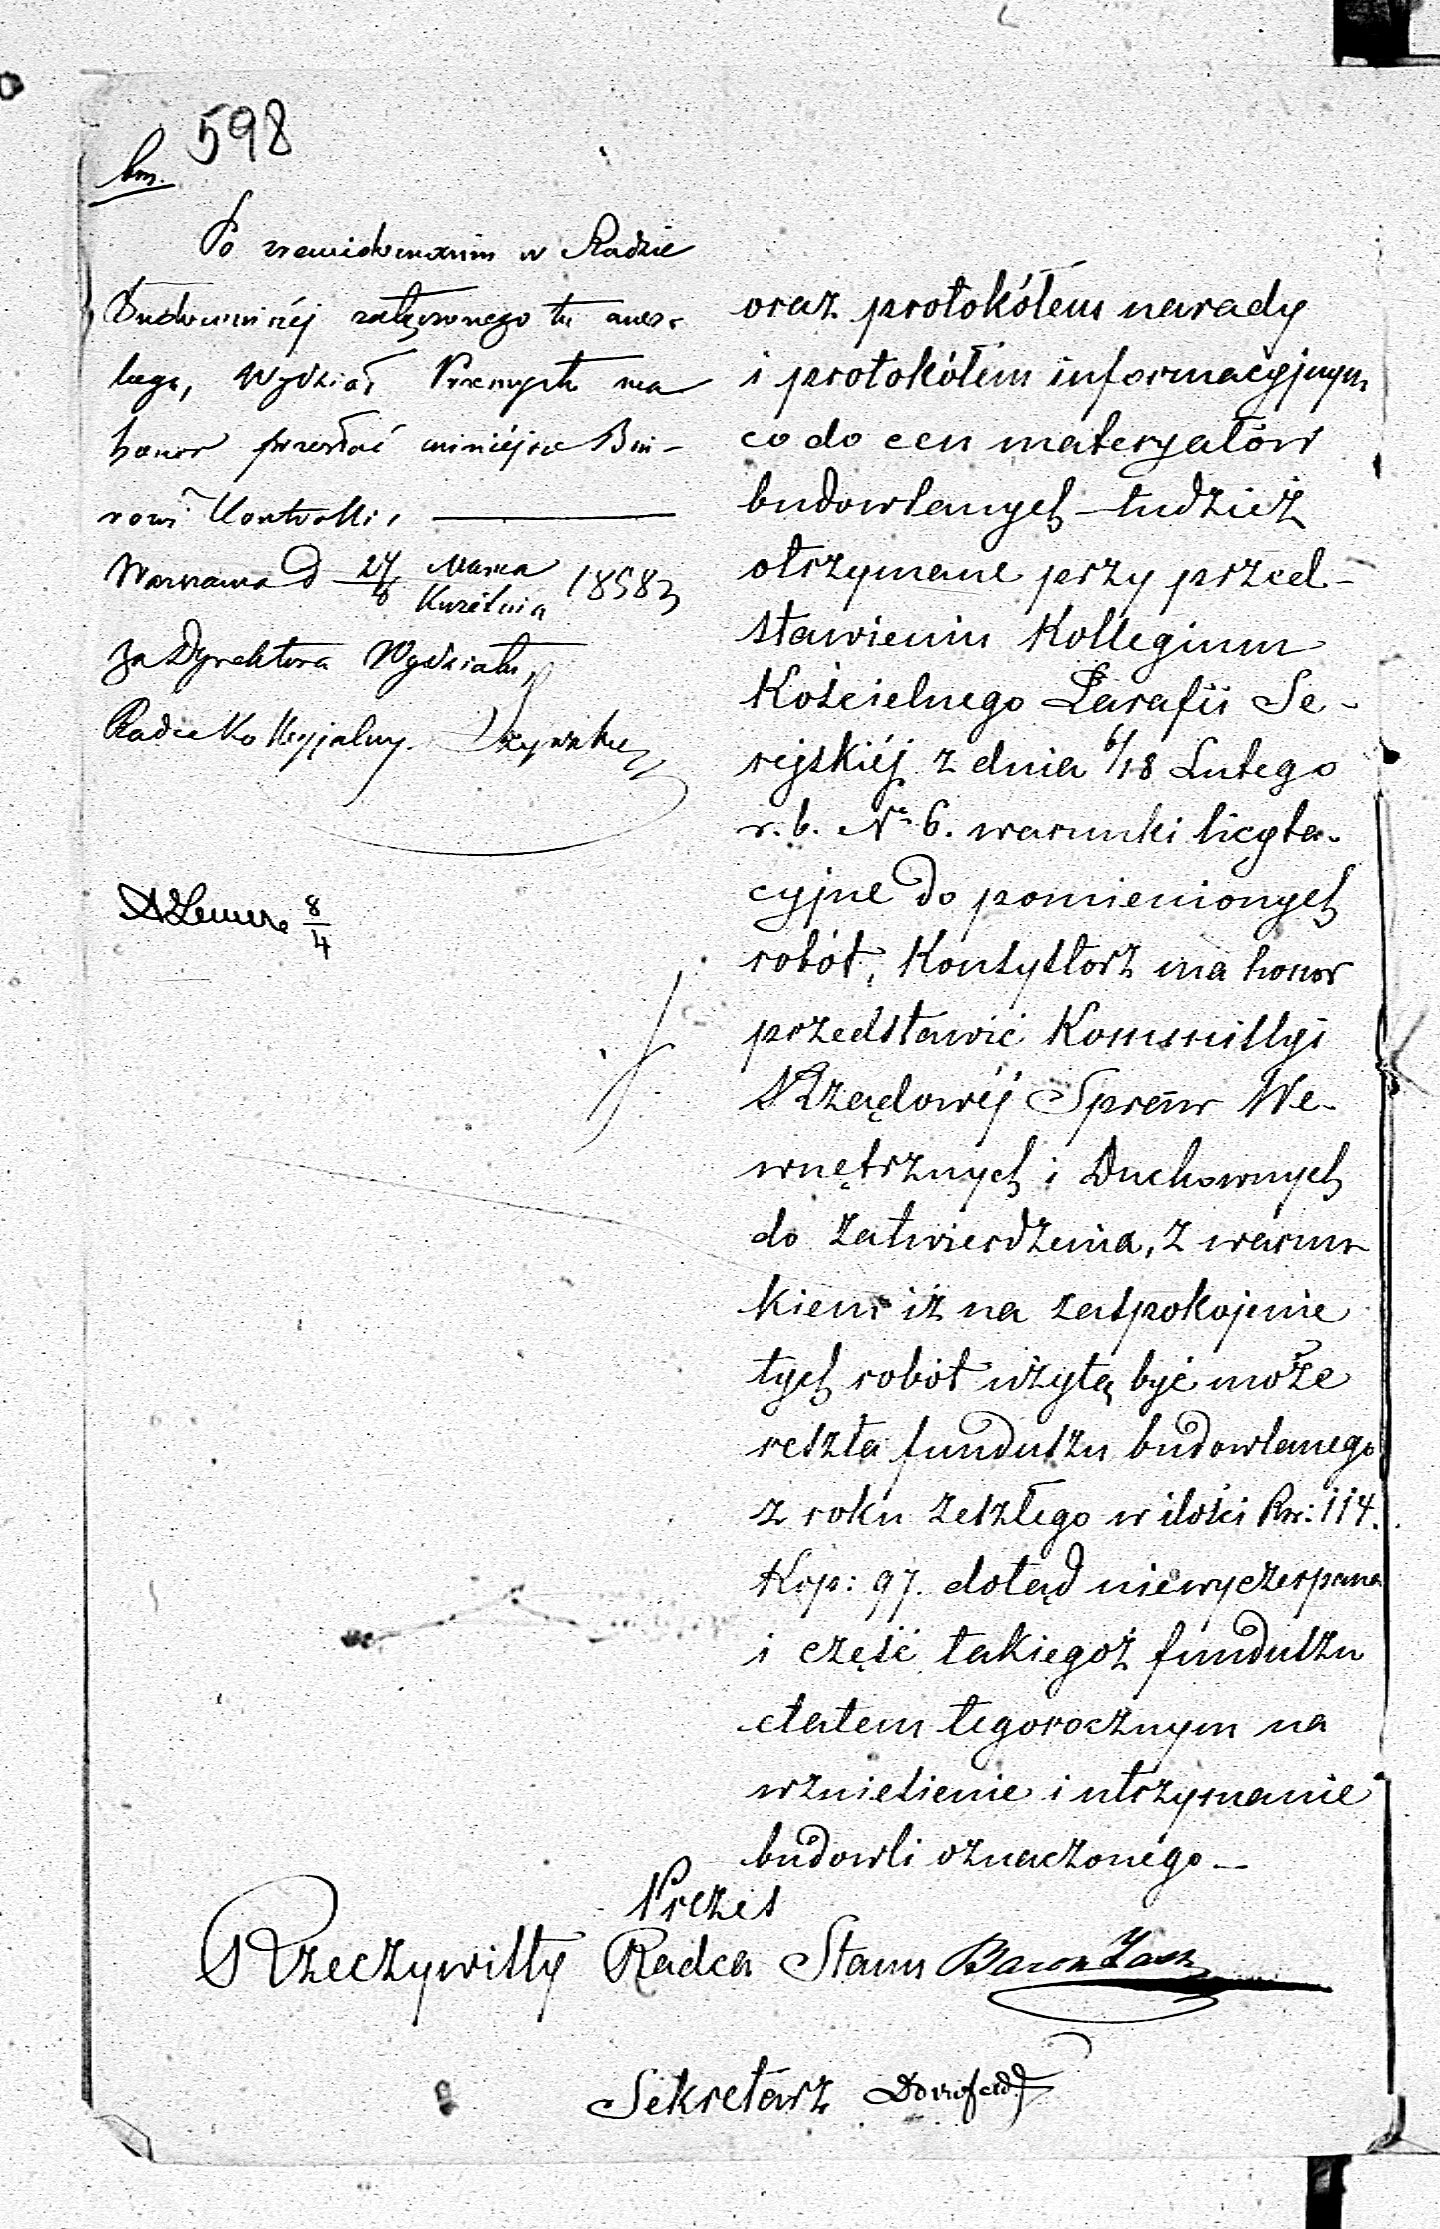 598
Po zrewidowaniu w Radzie
Budowniczéj załączonego tu ansz-
lagu, Wydział Przemysłu ma
honor przesłać niniéjsze Biu-
rowi Kontrolli,
Warszawa d 27/8 Marca/Kwietnia 1858 r
Za Dyrektora Wydziału,
Radca Kollegjalny
8/4
oraz protokółem narady
i protokółem informacyjnym
co do cen materyałów
budowlanych – tudzież
otrzymane przy przed-
stawieniu Kollegium
Kościelnego Parafii Se-
rejskiéj z dnia 6/18 Lutego
r. b. No 6. warunki licyta-
cyjne do pomienionych
robót, Konsystorz ma honor
przedstawić Kommissyi
Rządowéj Spraw We-
wnętrznych i Duchownych
do zatwierdzenia, z warun-
kiem iż na zaspokojenie
tych robót użytą być może
reszta funduszu budowlanego
z roku zeszłego w ilości Rsr: 114.
Kop: 97. dotąd niewyczerpana
i część takiegoż funduszu
etatem tegorocznym na
wzniesienie i utrzymanie
budowli oznaczonego –
Prezes
Rzeczywisty Radca Stanu Baron
Sekretarz